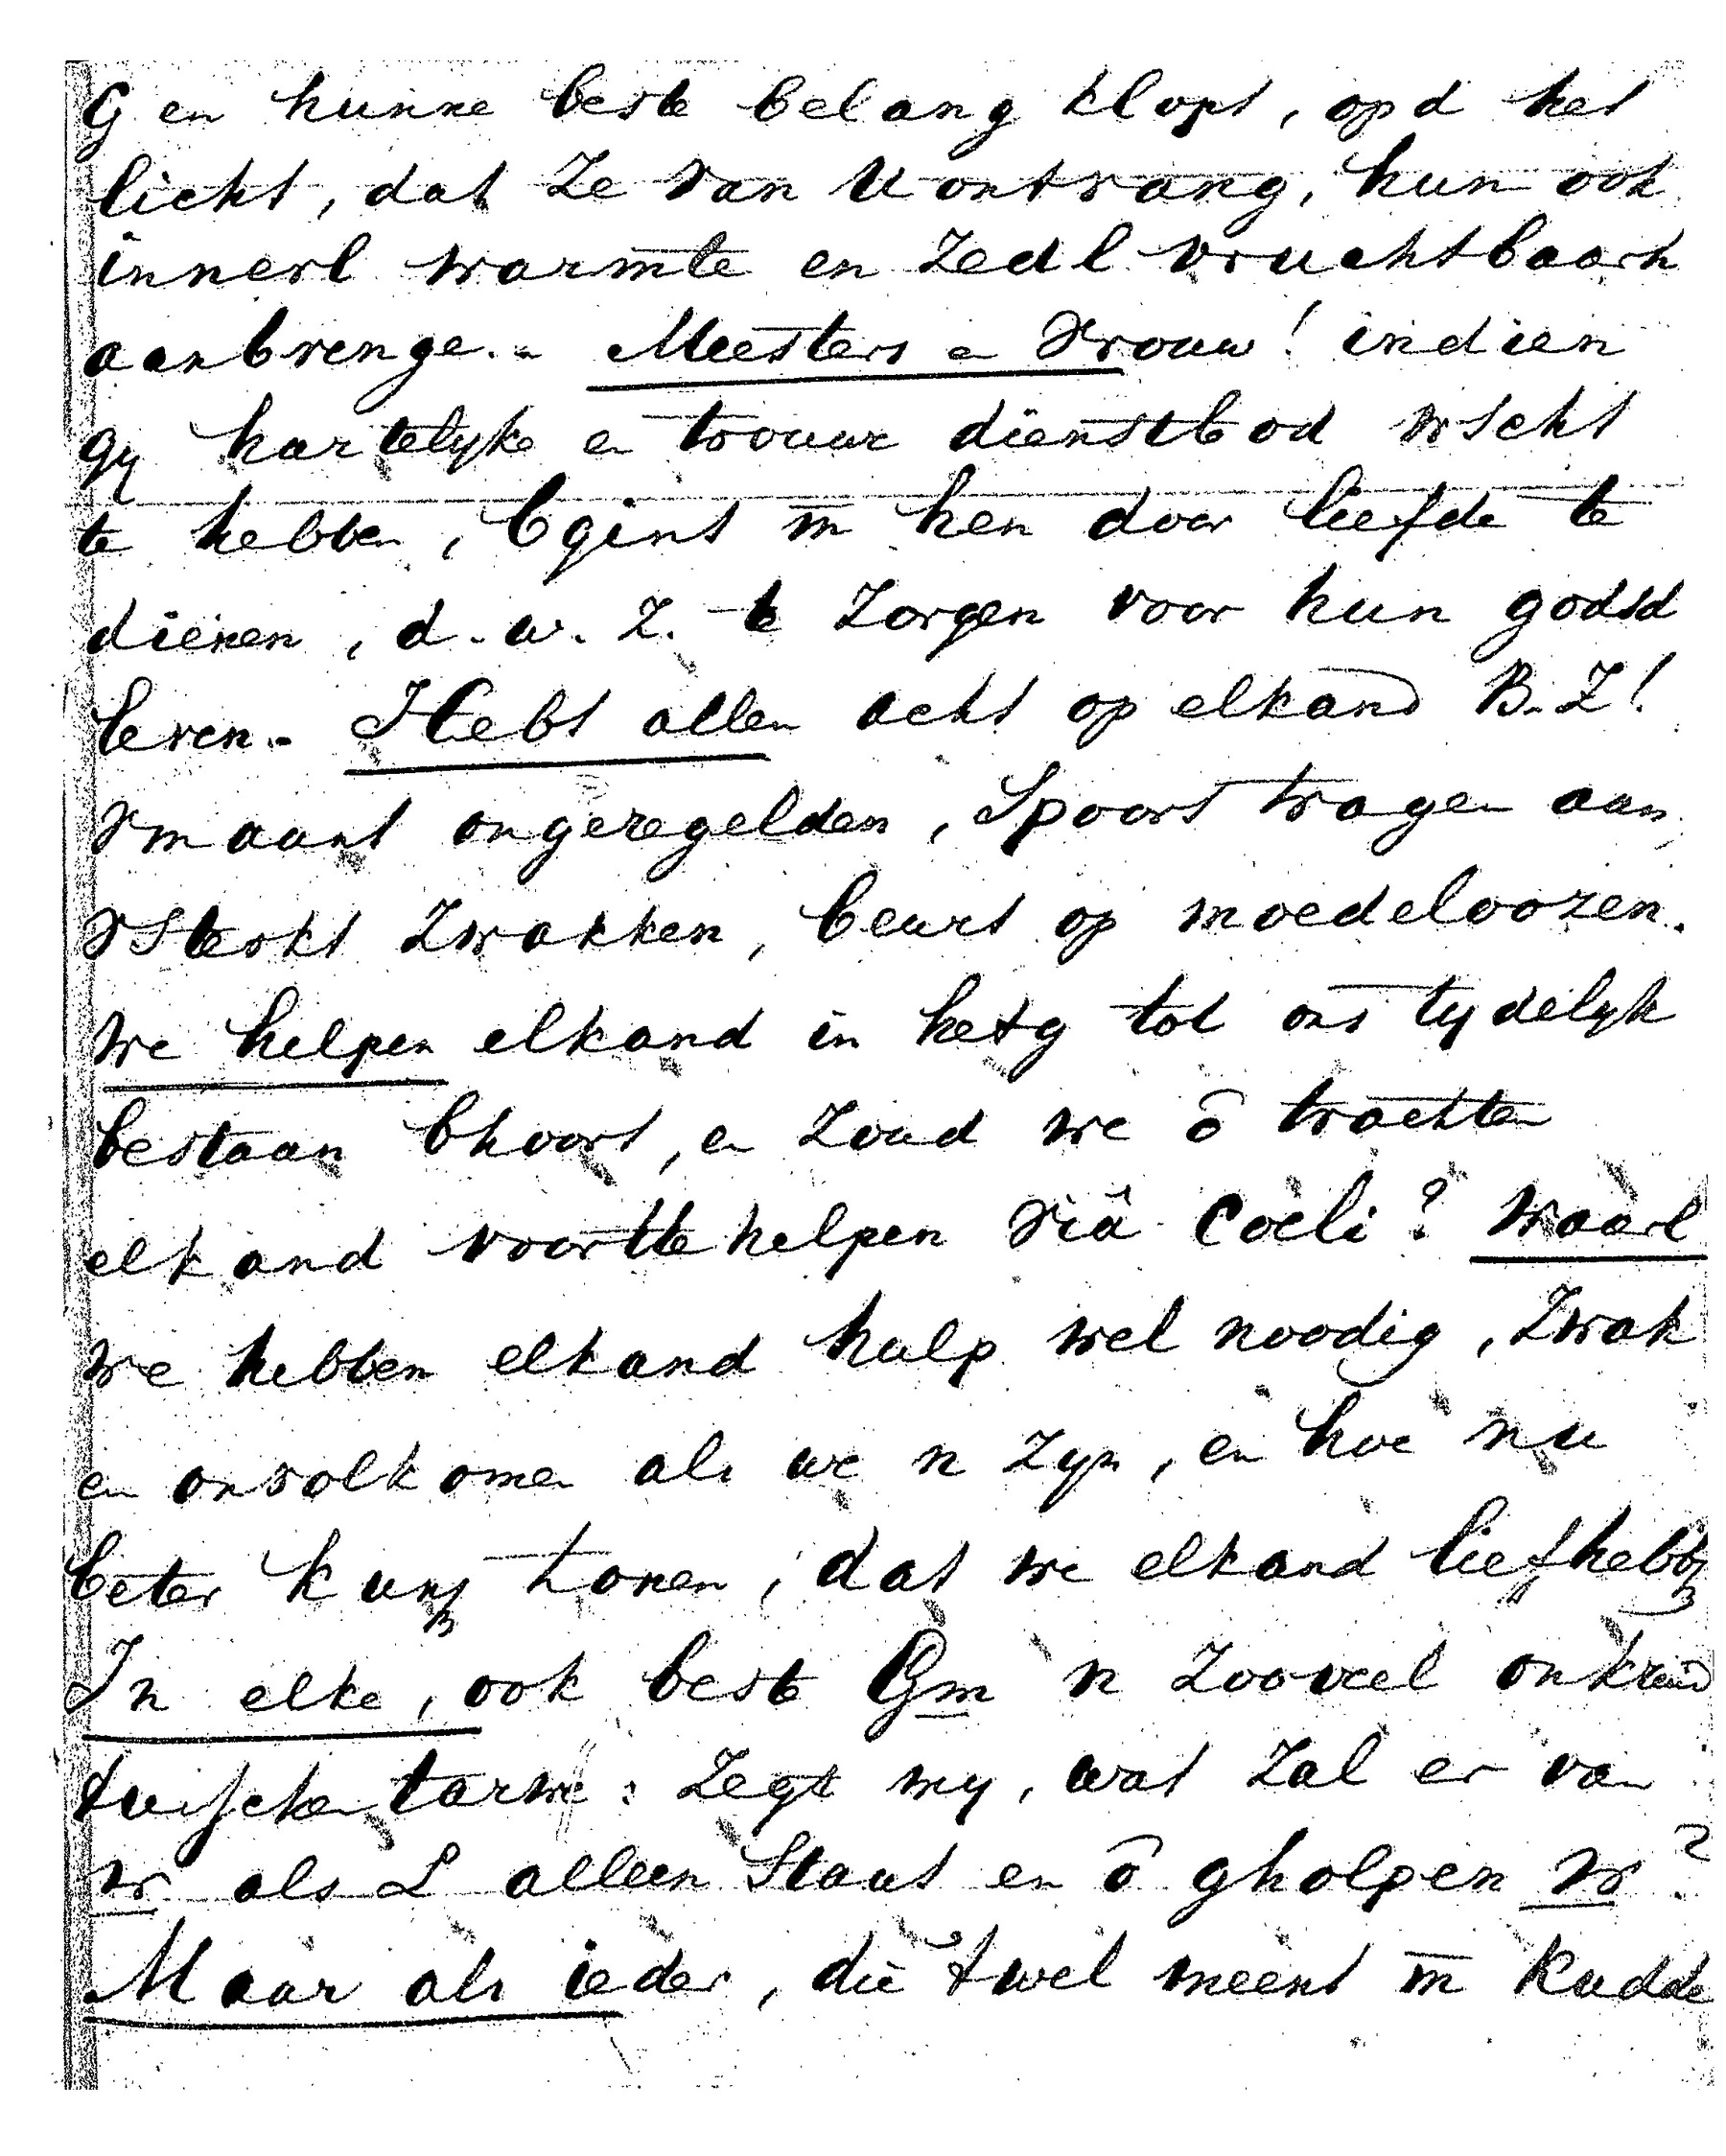 G en hunne beste belang klopt, opd het
licht, dat ze van U ontvang, hun ook
innerl warmte en zedl vruchtbaarh
aanbrenge. - Meesters en Vrouw! indien
gy hartelyke en trouwe dienstbod wscht
te hebben, bgint m hen door liefde te
dienen, d. w. z. te zorgen voor hun godsd
leven. - Hebt allen acht op elkand B. Z!
Vmaant ongeregelden, Spoort tragen aan,
VSterkt zwakken, beurt op moedeloozen.
We helpen elkand in hetg tot ons tydelyk
bestaan bhoort, en zoud we ô trachten
elkand voortte helpen viâ Coeli? Waarl
we hebben elkand hulp wel noodig, zwak
en onvolkomen als we n zyn, en hoe nu
beter kunn tonen, dat we elkand liefhebb
In elke, ook beste Gm n zooveel onkruid
tusschen tarwe: zegt my, wat zal er van
w als L alleen Staat en ô gholpen w?
Maar als ieder, die 't wel meent m Kudde